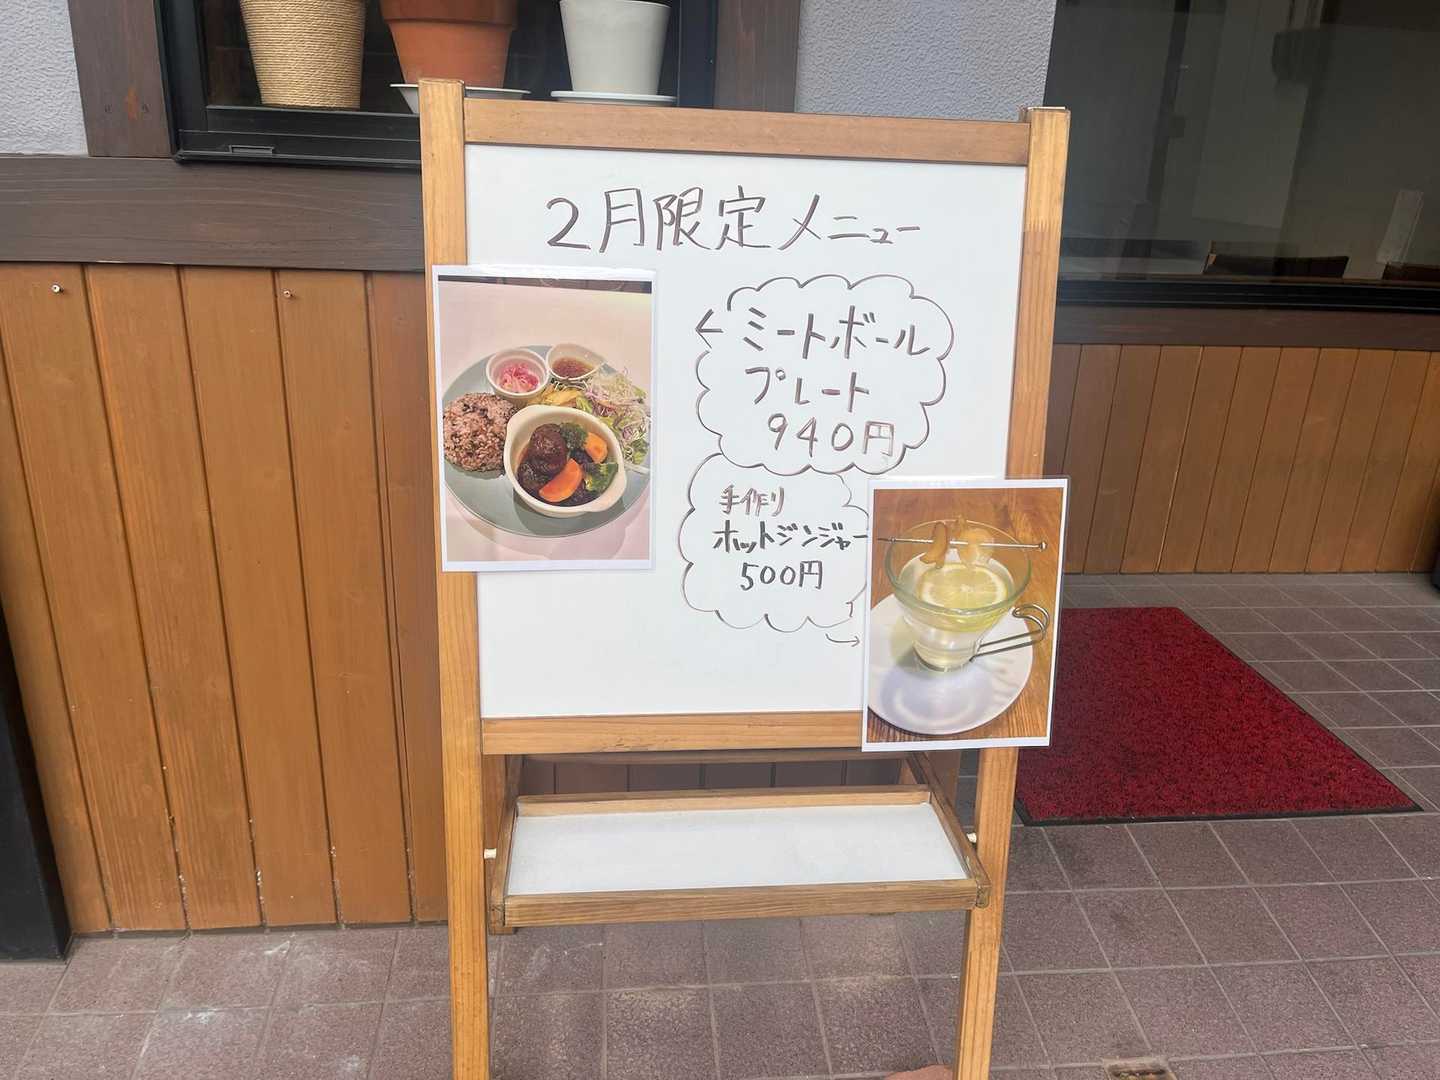 2月限定メニュー
←ミートボール
プレート
940円
手作り
ホットジンジャー
500円
→